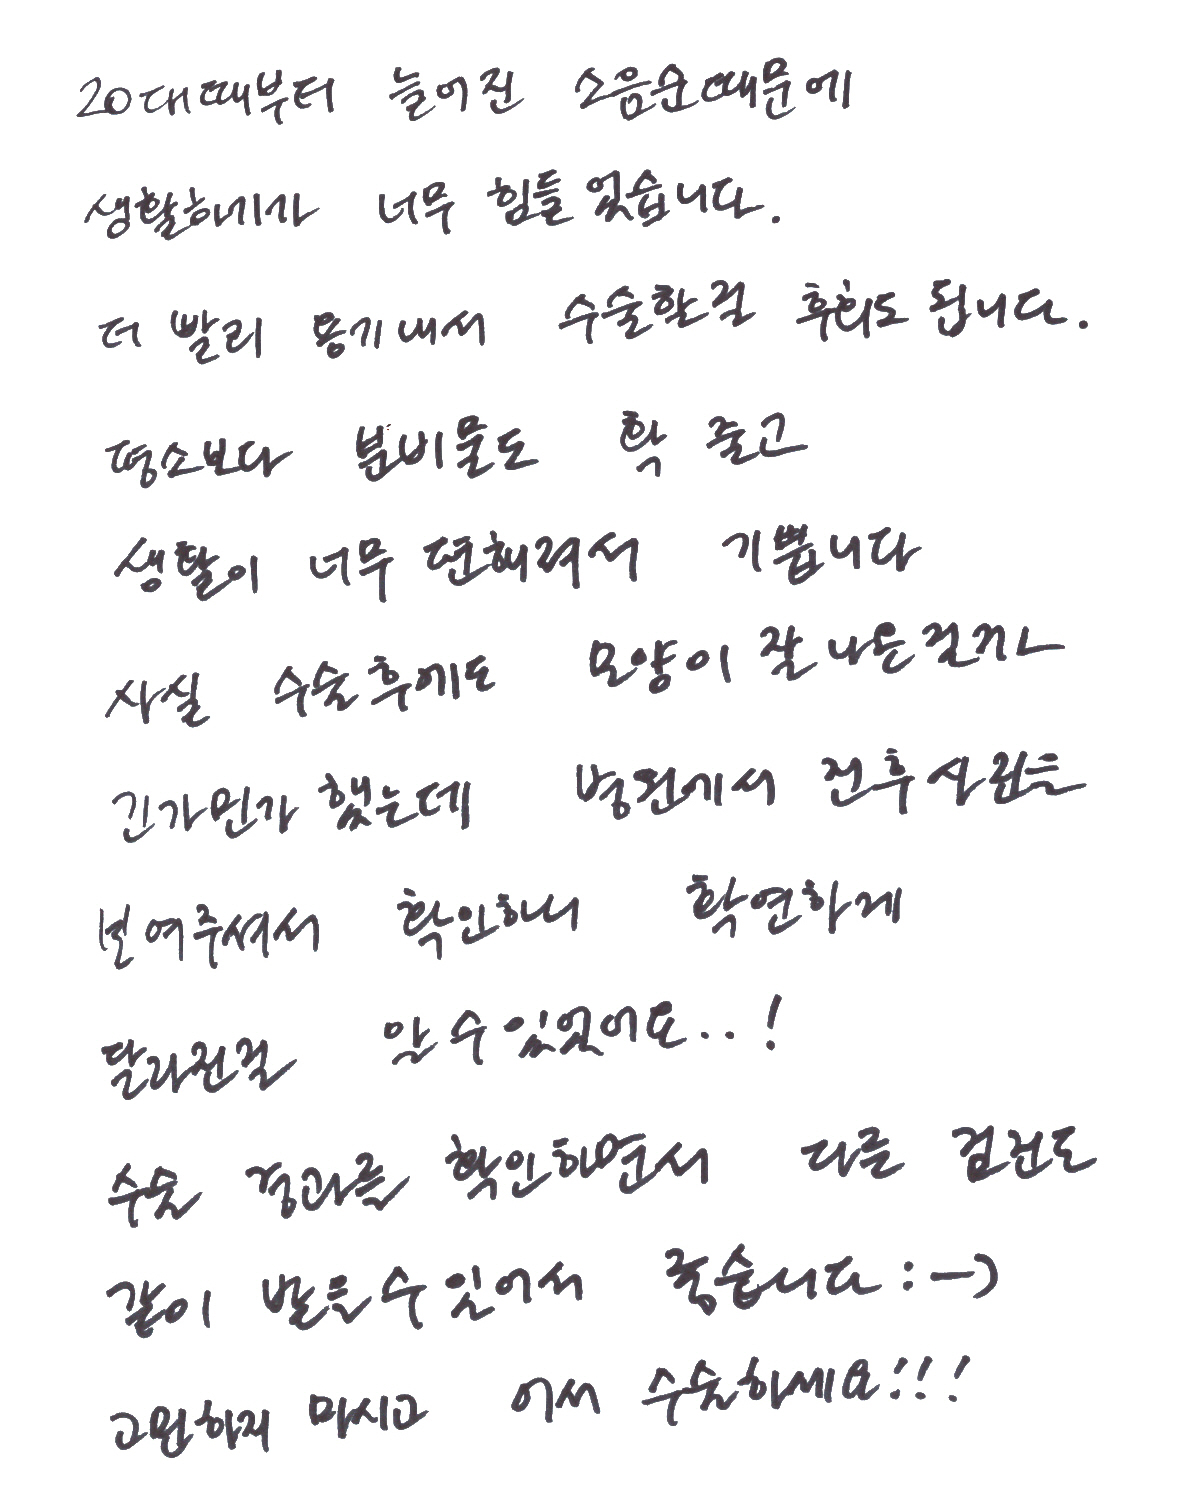 20대때부터 늘어진 소음순때문에
생활하기가 너무 힘들었습니다.
더 빨리 용기내서 수술할걸 후회도 됩니다.
평소보다 분비물도 확 줄고
생활이 너무 편해져서 기쁩니다
사실 수술후에도 모양이 잘 나온걸까
긴가민가 했는데 병원에서 전후사진을
보여주셔서 확인하니 확연하게
달라진걸 알 수 있었어요..!
수술 경과를 확인하면서 다른 검진도
같이 받을수 있어서 좋습니다 :-)
고민하지 마시고 어서 수술하세요!!!